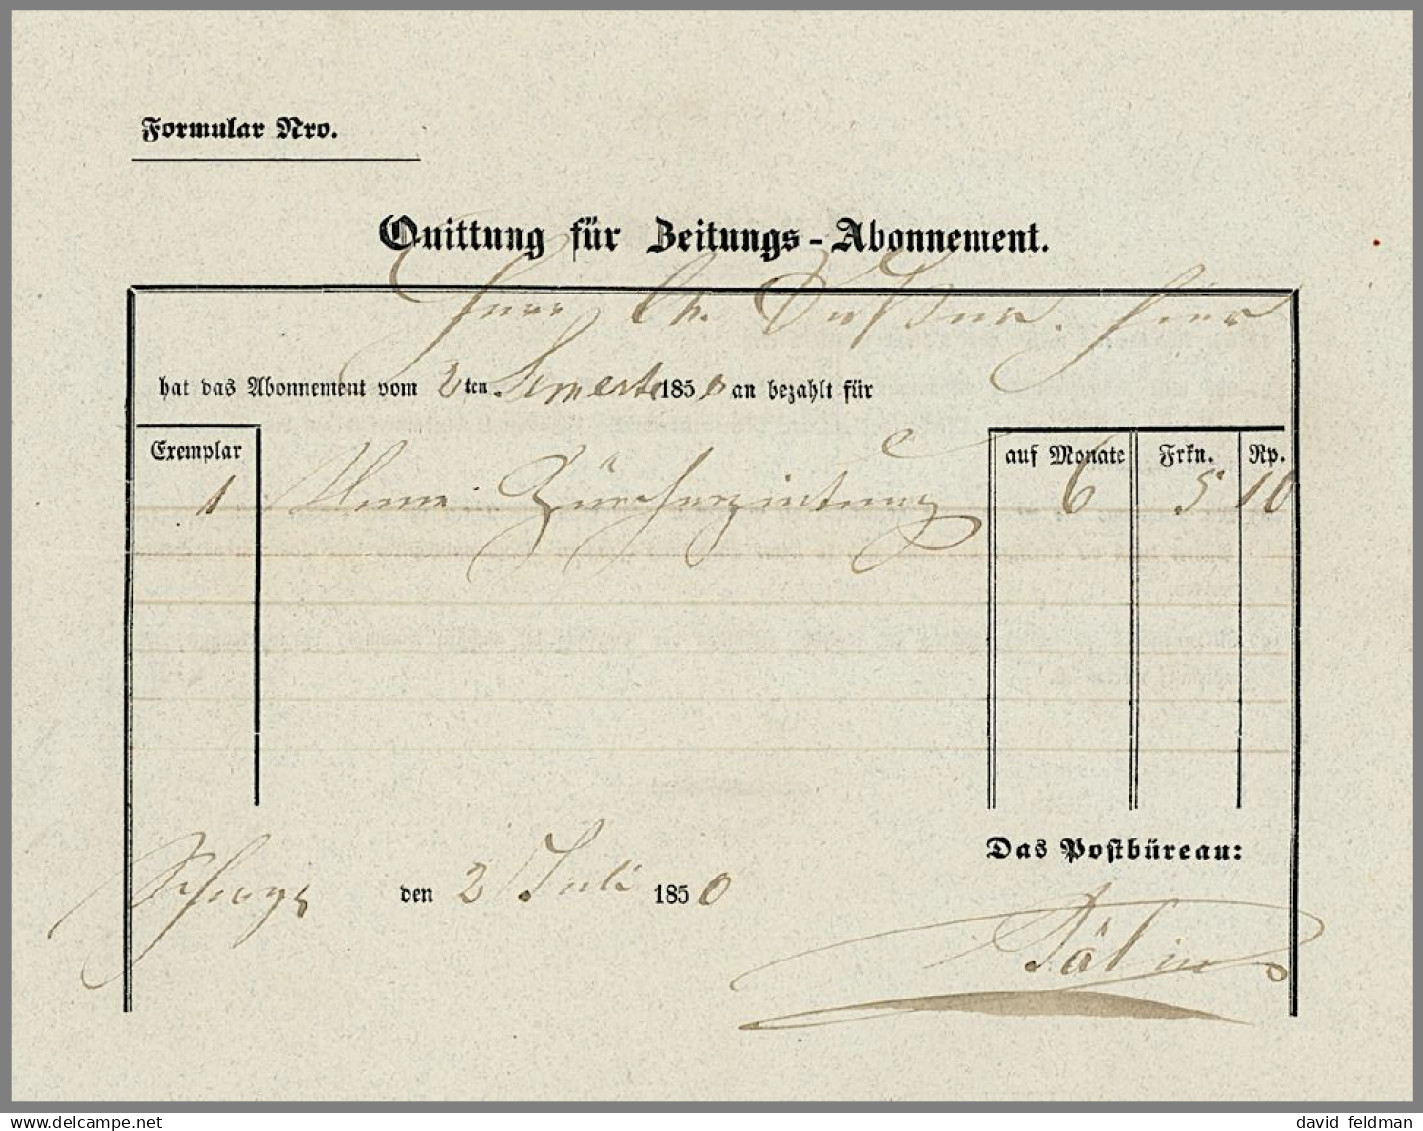 Formular Nro.
Quittung für Zeitungs-Abonnement.
Herr Ch. hier
hat das Abonnement vom 2ten Semester 1850 an bezahlt für
Exemplar auf Monate Frkn. Rp.
1 Neue Zürcherzeitung 6 5 10
Das Postbüreau:
den 2 Juli 1850
delcampe.net
david feldman